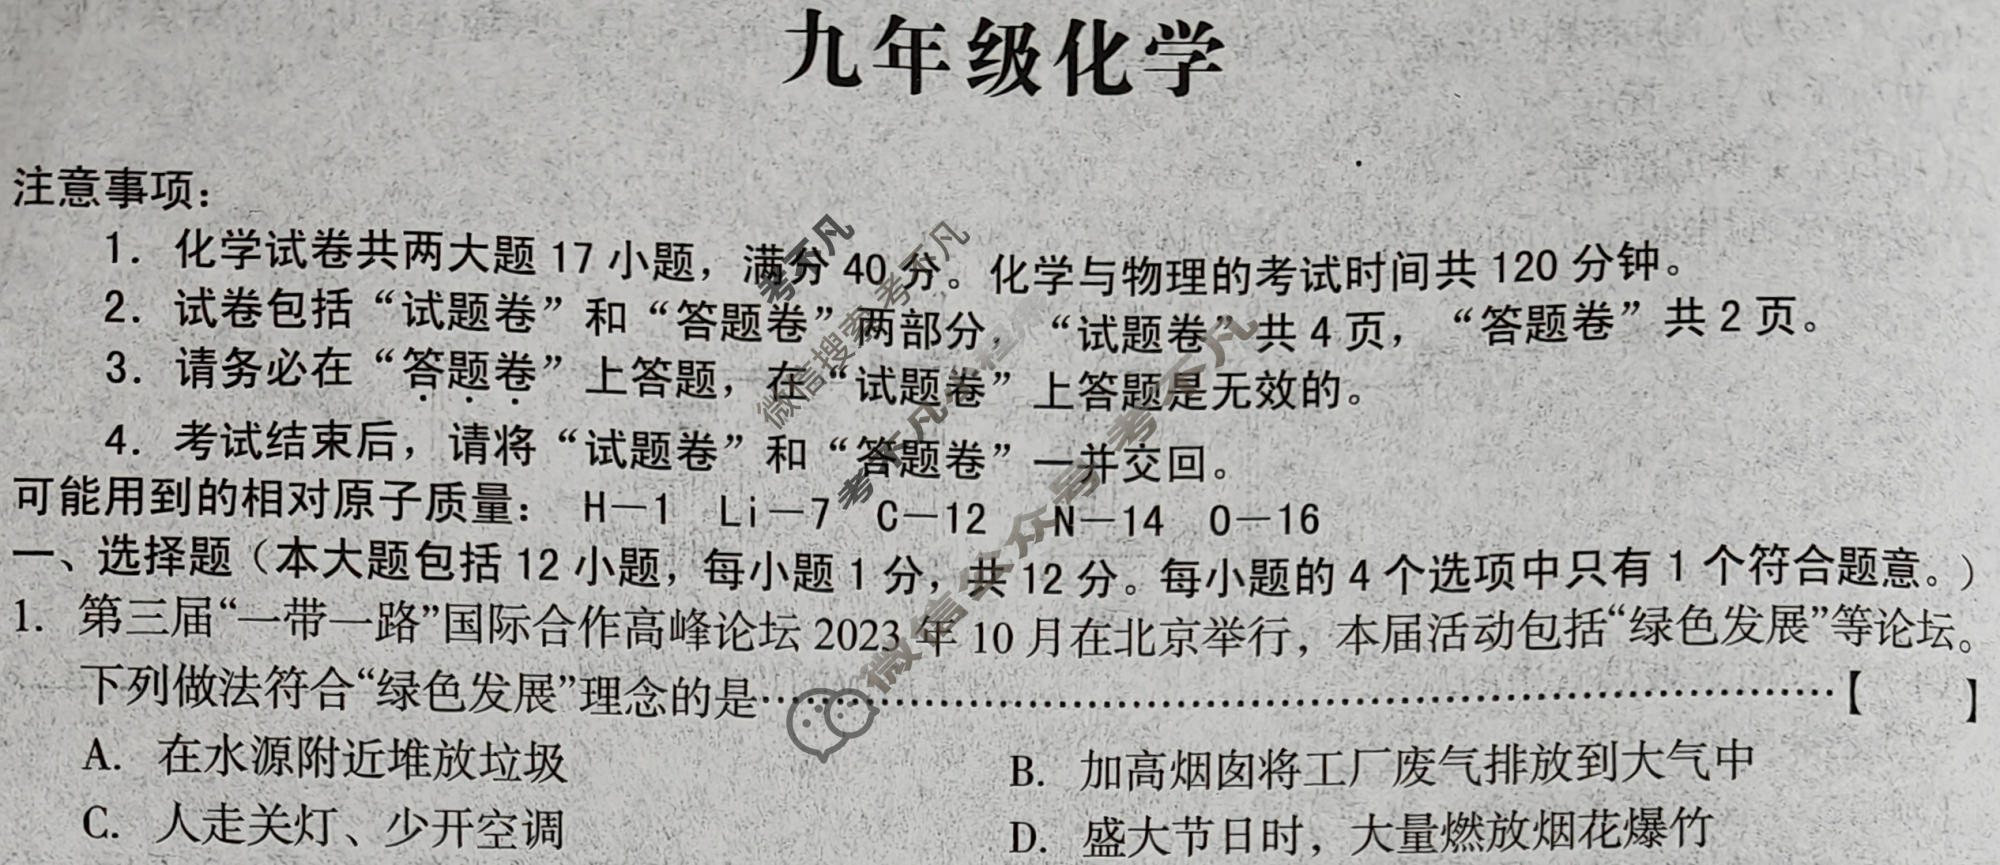 九年级化学
注意事项：
1. 化学试卷共两大题 17 小题，满分 40 分。化学与物理的考试时间共 120 分钟。
2. 试卷包括“试题卷”和“答题卷”两部分，“试题卷”共 4 页，“答题卷”共 2 页。
3. 请务必在“答题卷”上答题，在“试题卷”上答题是无效的。
4. 考试结束后，请将“试题卷”和“答题卷”一并交回。
可能用到的相对原子质量： H—1 Li—7 C—12 N—14 O—16
一、选择题（本大题包括 12 小题，每小题 1 分，共 12 分。每小题的 4 个选项中只有 1 个符合题意。）
1. 第三届“一带一路”国际合作高峰论坛 2023 年 10 月在北京举行，本届活动包括“绿色发展”等论坛。
下列做法符合“绿色发展”理念的是……………………………………………………【 】
A. 在水源附近堆放垃圾 B. 加高烟囱将工厂废气排放到大气中
C. 人走关灯、少开空调 D. 盛大节日时，大量燃放烟花爆竹
考不凡
微信搜索 考不凡
考不凡
微信公众号 考不凡